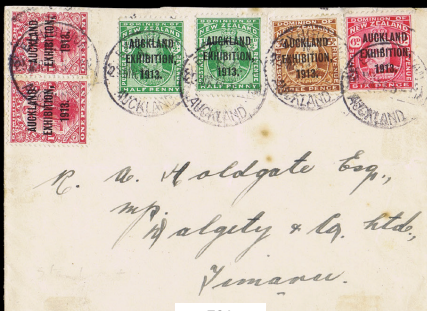 AUCKLAND
EXHIBITION,
1913.
AUCKLAND
EXHIBITION,
1913.
DOMINION OF
NEW ZEALAND
AUCKLAND
EXHIBITION,
1913.
HALF PENNY
DOMINION OF
NEW ZEALAND
AUCKLAND
EXHIBITION,
1913.
HALF PENNY
DOMINION OF
NEW ZEALAND
AUCKLAND
EXHIBITION,
1913.
DOMINION OF
NEW ZEALAND
AUCKLAND
EXHIBITION,
1913.
SIX PENCE
AUCKLAND
AUCKLAND
AUCKLAND
R. A. Holdgate Esq.,
Dalgety & Co. Ltd.,
Timaru.